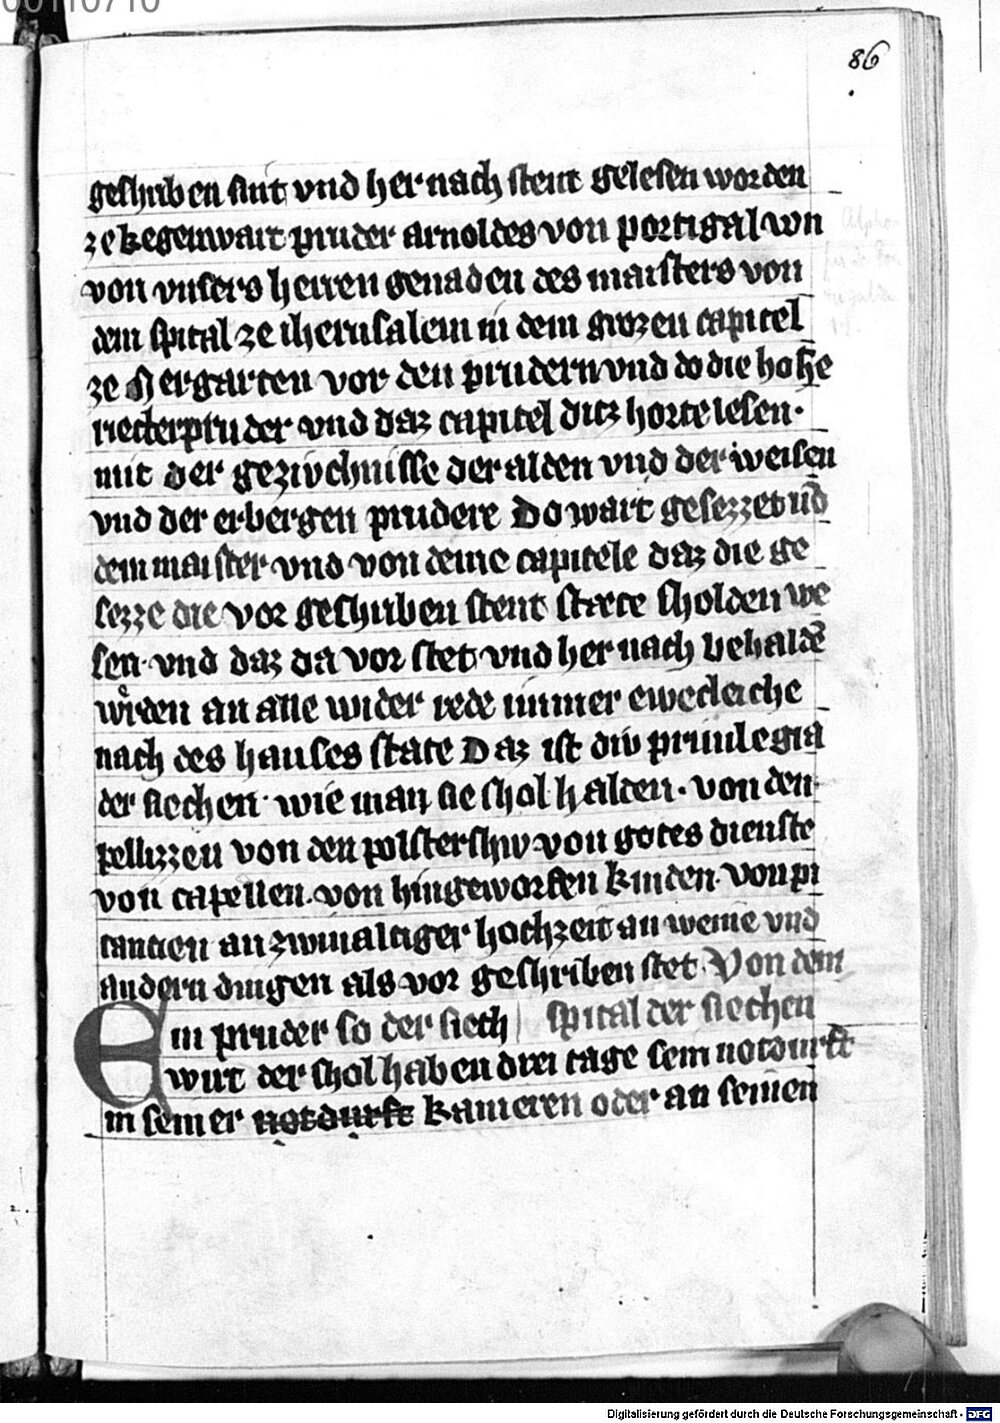 00110710
86
geshriben sint vnd her nach stent gelesen worden
ze kegenwart pruder arnoldes von portigal von
von vnsers herren genaden des maisters von
dem spital ze iherusalem in dem grozen capitel
ze Mergarten vor den prudern vnd do die hohe
riecterpruder vnd daz capitel ditz horte lesen·
mit der gezivchnisse der alden vnd der weisen
vnd der erbergen prudere Do wart gesezzet vō
dem maister vnd von deme capitele daz die ge
sezze die vor geshriben stent stæte sholden we
sen· vnd daz da vor stet vnd her nach behaldē
wrden an alle wider rede immer ewecleiche
nach des hauses state Daz ist div priuilegia
der siechen· wie man sie shol halden· von den
pellizzen von den polstershiv von gotes dienste
von capellen· von hingeworfen kinden· von pi
tancien an zwivaltiger hochzeit an weine vnd
andern dingen als vor geshriben stet· Von dem
Ein pruder so der siech spital der siechen
wirt der shol haben drei tage sein notdurft
in seiner notdurft kameren oder an seinen
Digitalisierung gefördert durch die Deutsche Forschungsgemeinschaft - DFG